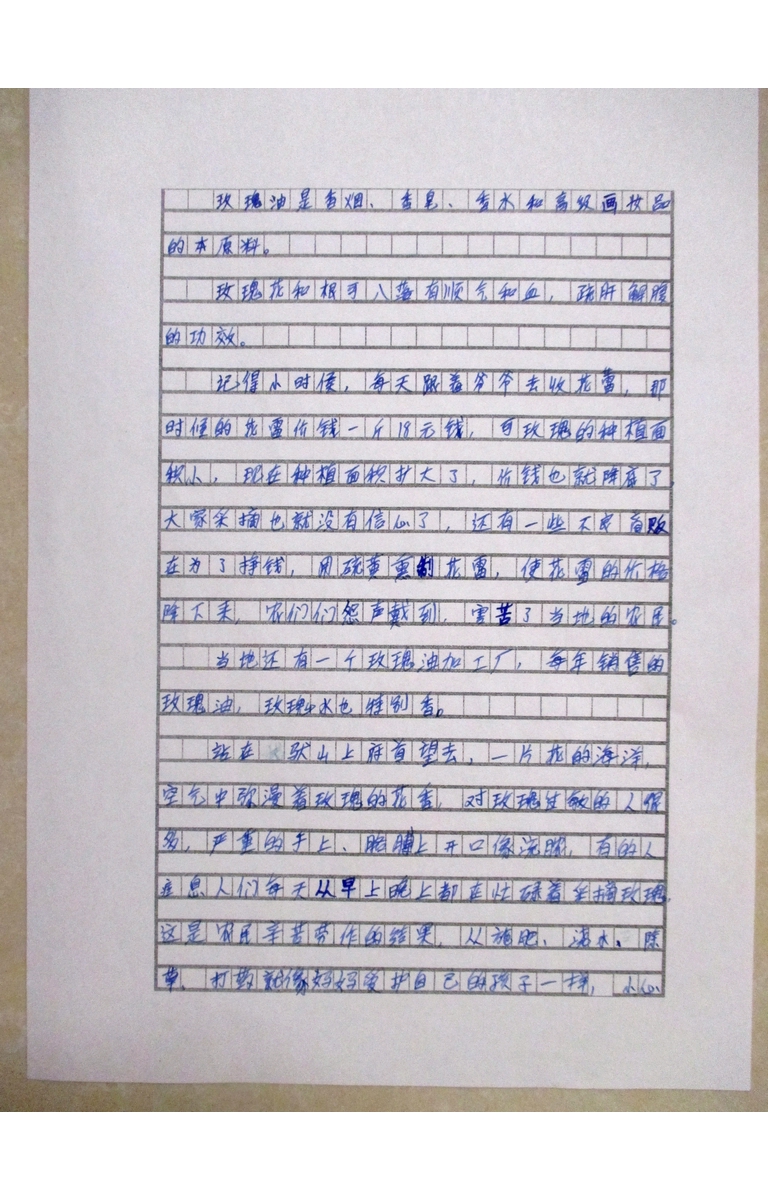 玫瑰油是香烟、香皂、香水和高级画妆品
的本原料。
玫瑰花和根可入药有顺气和血，疏肝解
的功效。
记得小时侯，每天跟着爷爷去收花蕾，那
时候的花蕾价钱一斤18元钱，可玫瑰的种植面
积小，现在种植面积扩大了，价钱也就降底了，
大家采摘也就没有信心了，还有一些不
在为了挣钱，用硫黄熏制花蕾，使花蕾的价格
降下来，农们们怨声戴到，害苦了当地的农民。
当地还有一个玫瑰油加工厂，每年销售的
玫瑰油，玫瑰水也特别香。
站在山上府首望去，一片花的海洋，
空气中弥漫着玫瑰的花香，对玫瑰过敏的人很
多，严重的手上、胳膊上开口像流脓，有的人
人们每天从早上晚上都在忙碌着采摘玫瑰，
这是农民辛苦劳作的结果，从施肥、浇水、除
草、打药就像妈妈爱护自己的孩子一样，小心